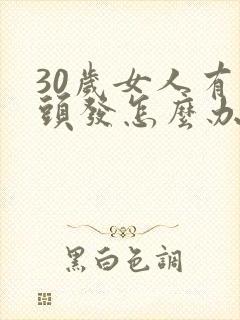 30歲女人有
頭發怎麼办
黑白色調